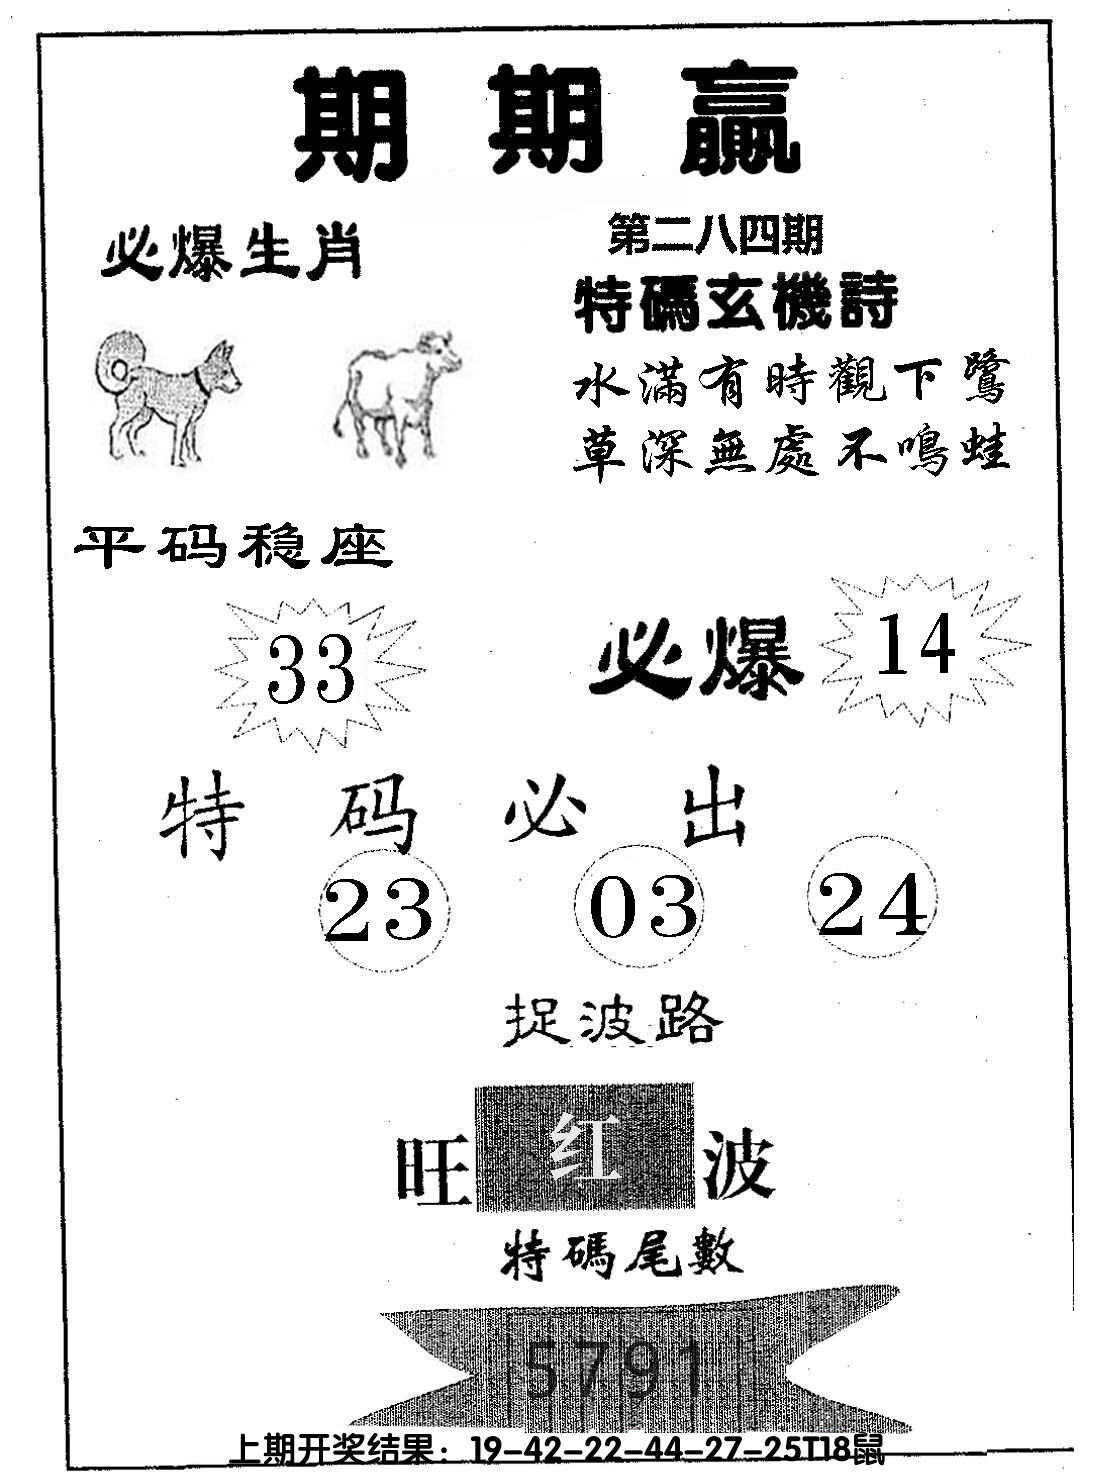 期期贏
第二八四期
必爆生肖
特碼玄機詩
水滿有時觀下鷺
草深無處不鳴蛙
平码稳座
33
必爆 14
特码必出
23 03 24
捉波路
旺 红 波
特碼尾數
5791
上期开奖结果：19-42-22-44-27-25T18鼠